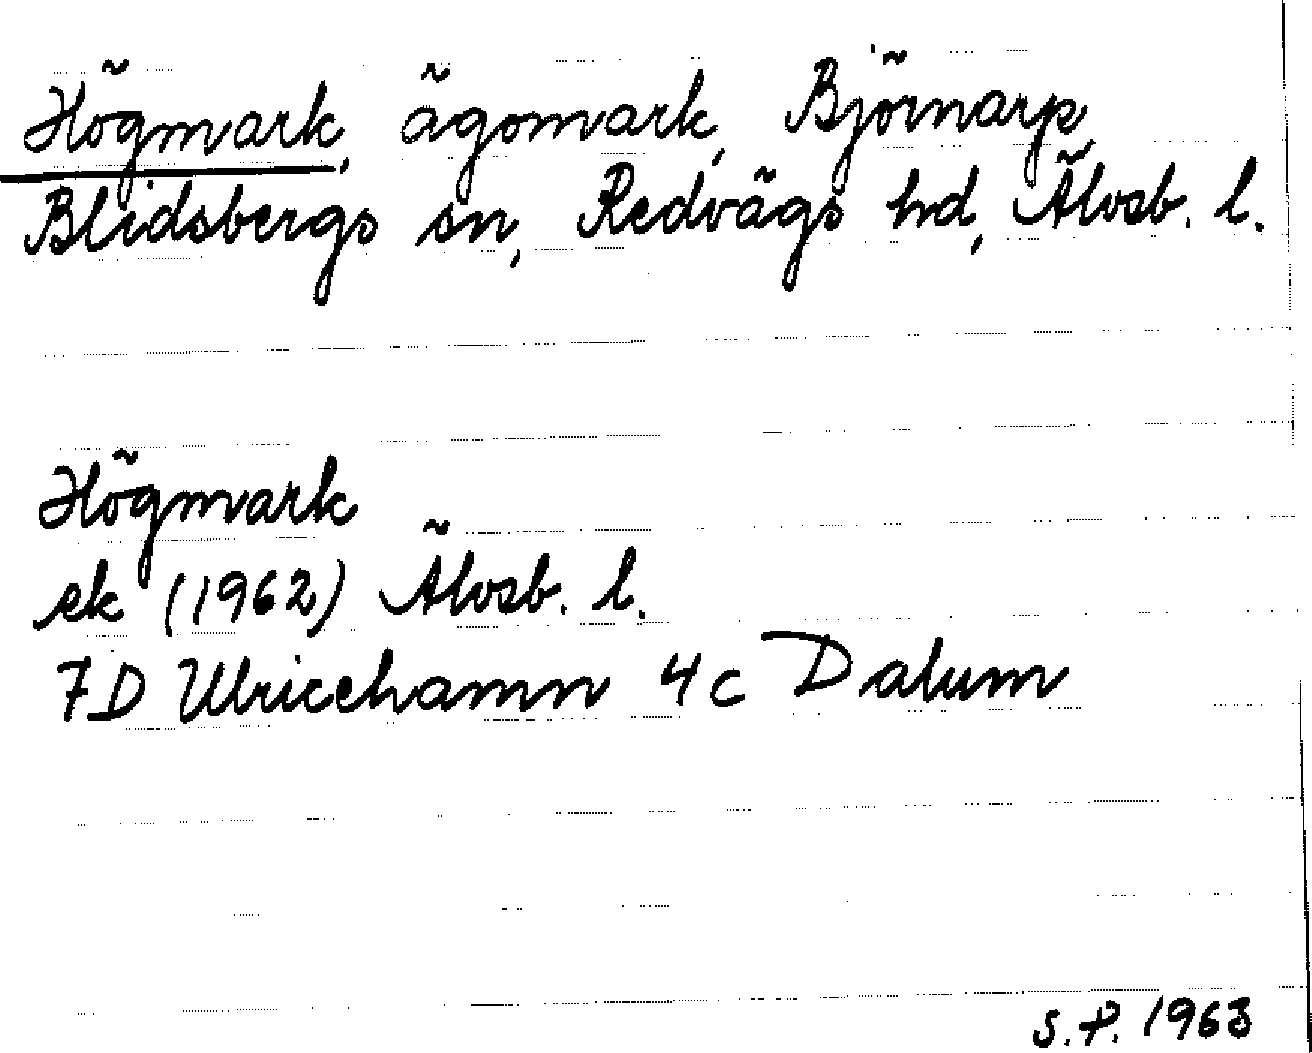 Högmark, ägomark, Björnarp,
Blidsbergs sn, Redvägs hd, Älvsb. l.
Högmark
ek (1962) Älvsb. l.
7D Ulricehamn 4c Dalum
S.P. 1963